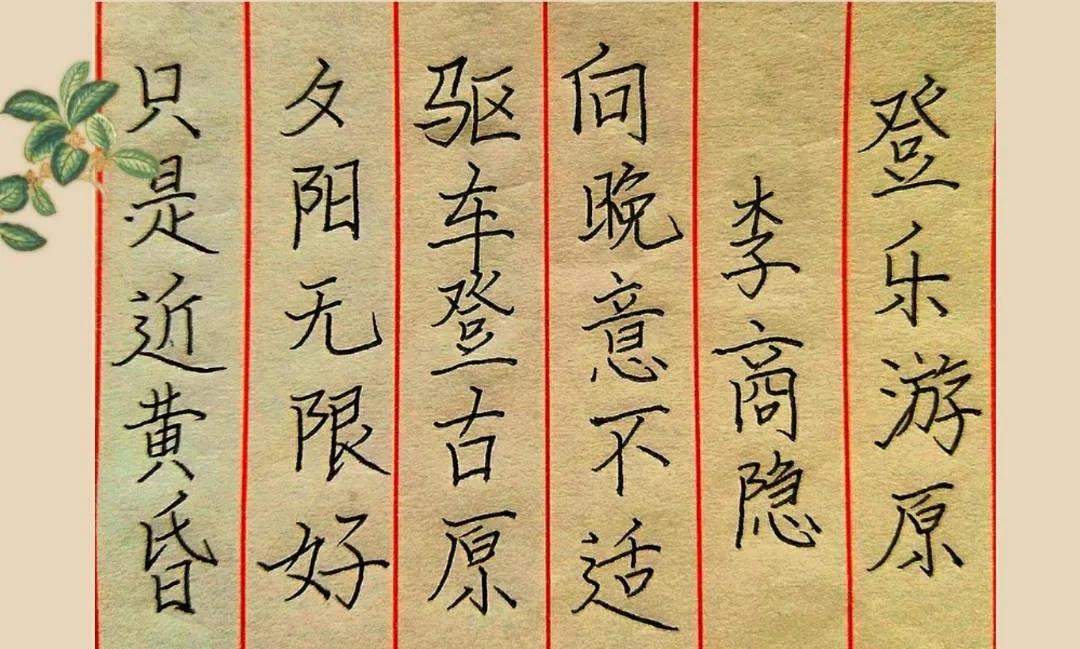 登乐游原
李商隐
向晚意不适
驱车登古原
夕阳无限好
只是近黄昏